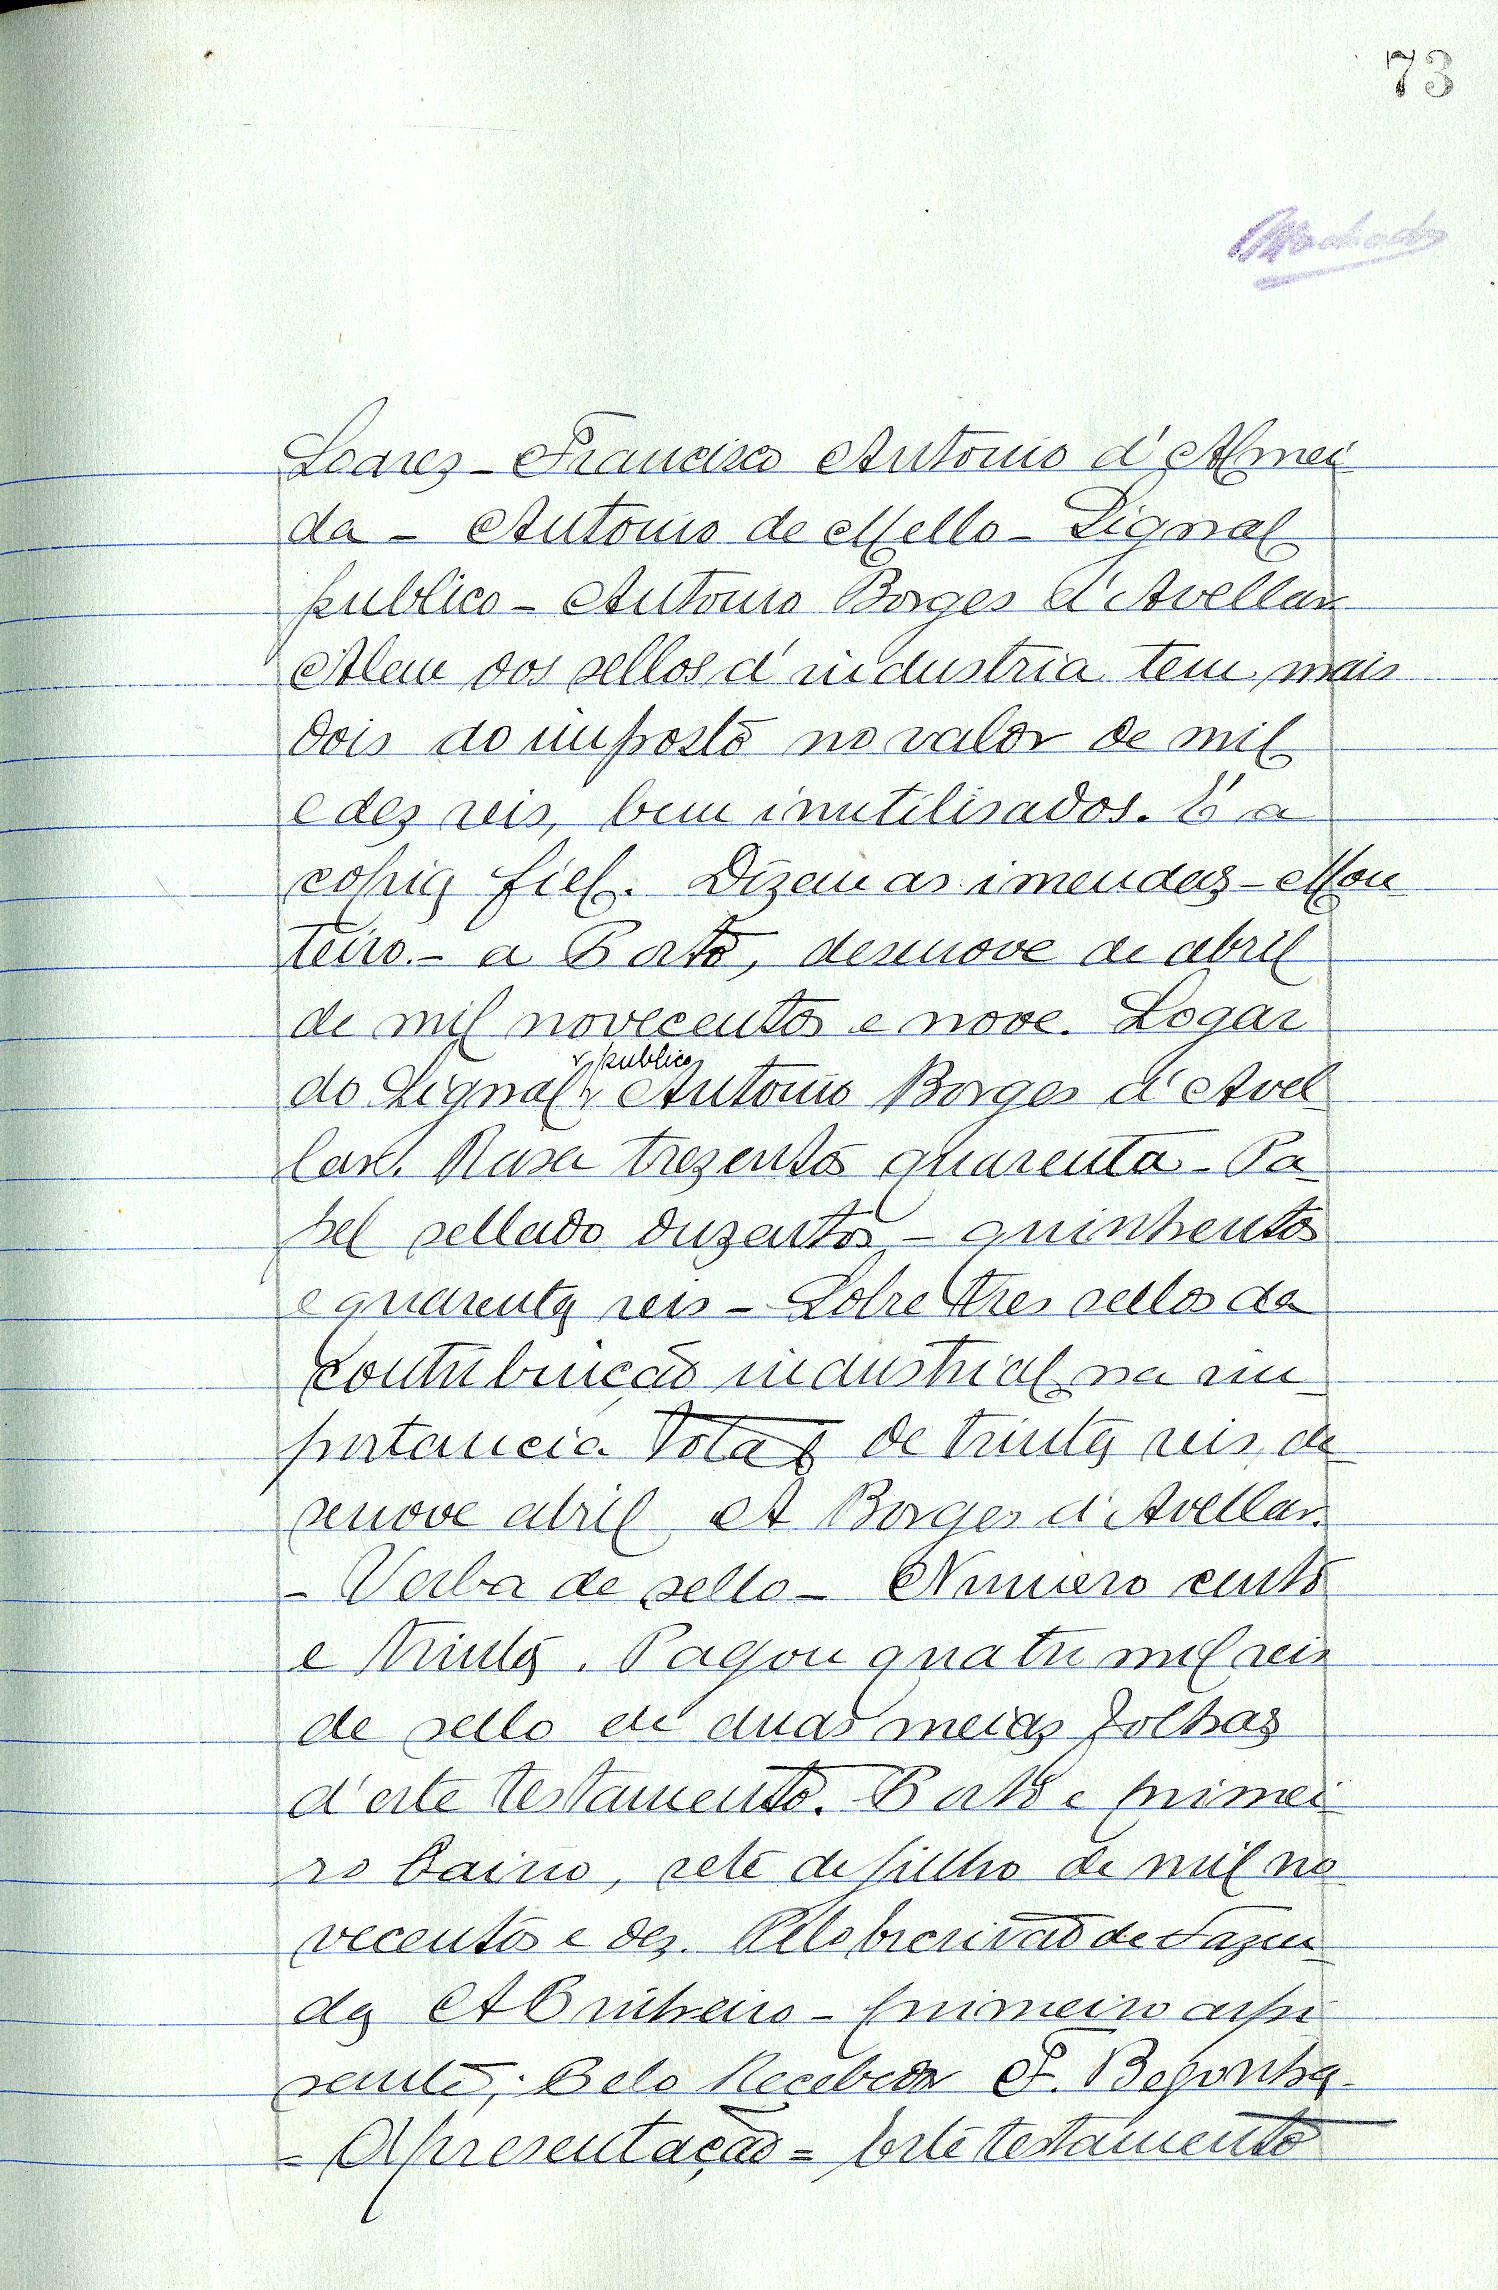 73
Machado
Soares - Francisco Antonio d'Almei
da - Antonio de Mello - Signal
publico - Antonio Borges d'Avellar
Alem dos sellos d'industria tem mais
dois do imposto no valor de mil
e dez reis, bem inutilisados. É a
copia fiel. Dizem as imendas - Mon
teiro. - a Porto, desenove de abril
de mil novecentos e nove. Logar
do Signal publico Antonio Borges d'Avel
lar. Rasa trezentos quarenta - Pa-
pel sellado duzentos - quinhentos
e quarenta reis - Sobre tres sellos da
contribuição industrial na im-
portancia total de trinta reis, de-
senove abril A Borges d'Avellar.
- Verba de sello - Numero cento
e trinta. Pagou quatro mil reis
de sello de duas meias folhas
d'este testamento. Porto e primei
ro bairro, sete de julho de mil no
vecentos e dez. Pelo Escrivão de Fazen-
da A Pinheiro - primeiro aspi
rante; Pelo Recebedor F. Begonha -
= Apresentação = Este testamento